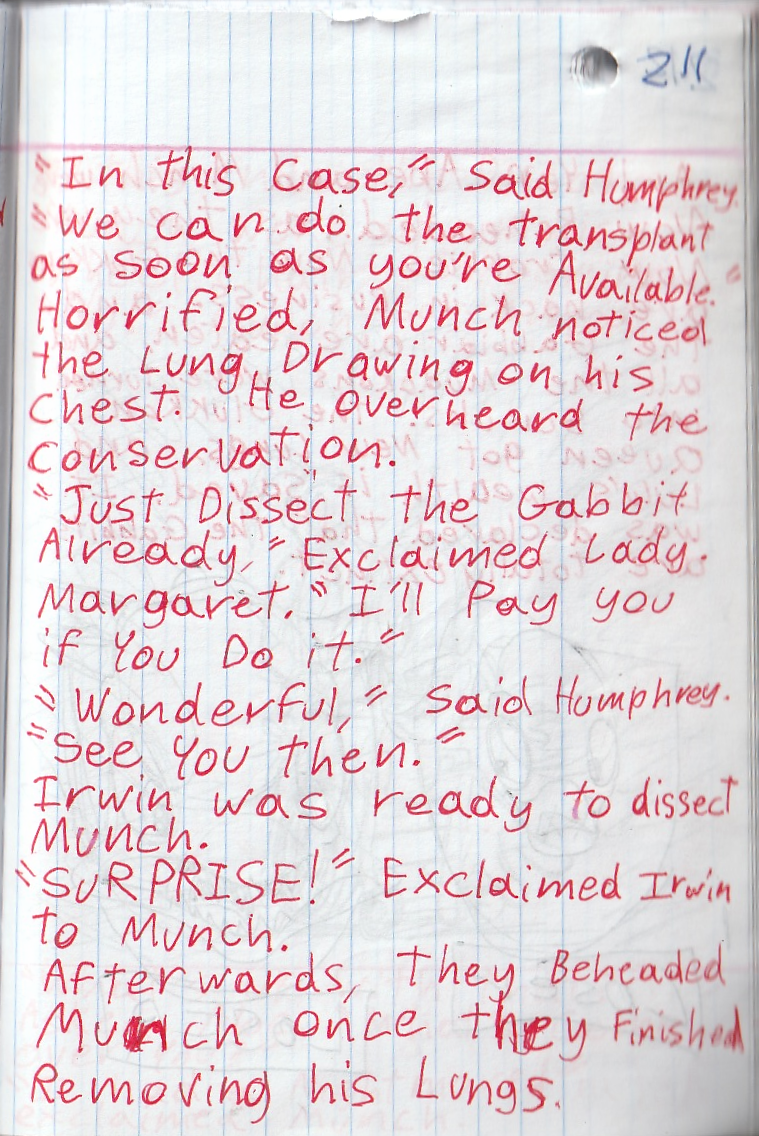 211
"In this Case," Said Humphrey.
"We can do the transplant
as soon as you're Available."
Horrified, Munch noticed
the Lung Drawing on his
Chest. He overheard the
Conservation.
"Just Dissect the Gabbit
Already," Exclaimed Lady.
Margaret. "I'll Pay you
if You Do it."
"Wonderful," said Humphrey.
"See You then."
Irwin was ready to dissect
Munch.
"SURPRISE!" Exclaimed Irwin
to Munch.
Afterwards, they Beheaded
Munch once they Finished
Removing his Lungs.